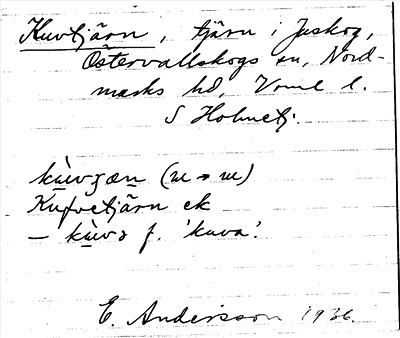 Kuvtjärn, tjärn i Juskog,
Östervallskogs sn, Nord-
marks hd, Vrml l.
S Holmetj.
kùvʒæn (ɯ → ɯ)
Kufvetjärn ek
— kùvə f. 'kuva'.
E. Andersson 1936.